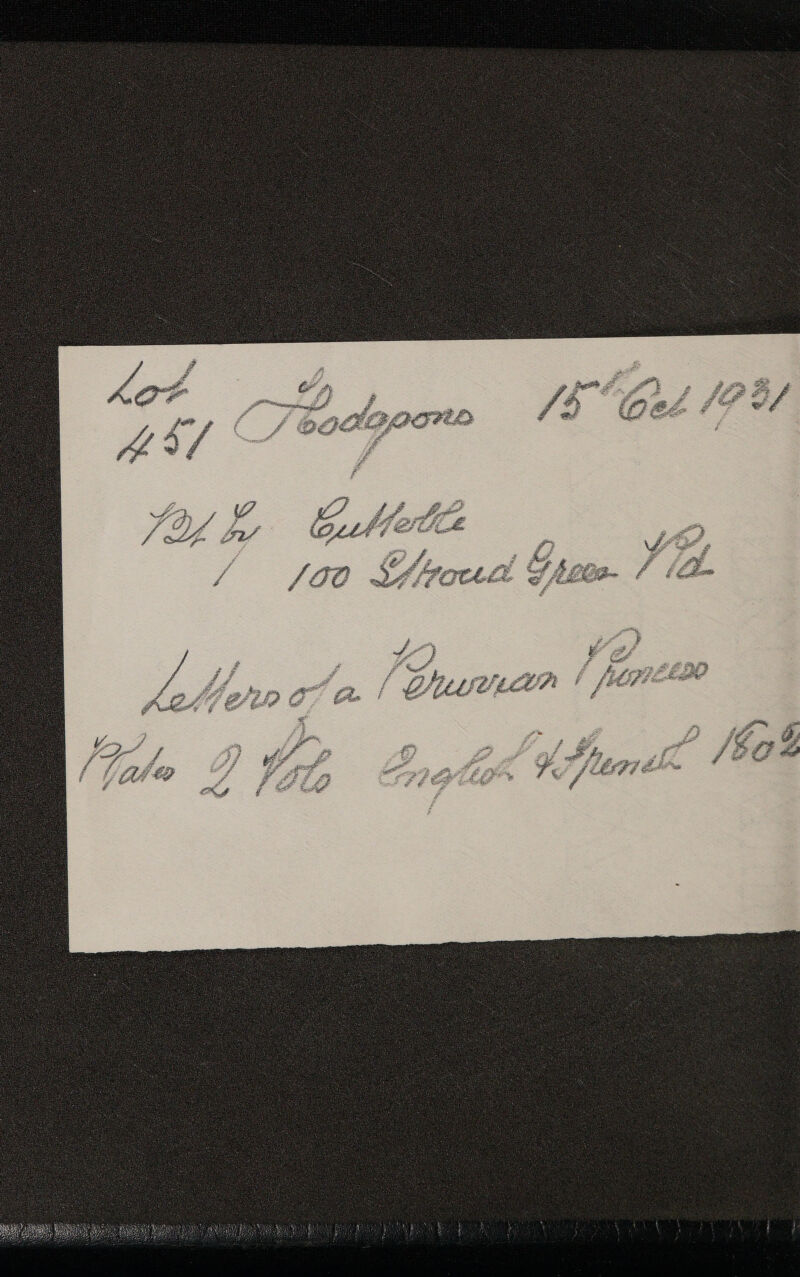 Lot
451 Hodgsons 15th Oct 1931
Bt by
100 Stroud Green Rd
Letters of a Peruvian Princess
Plates 2 Vols English & French 1802